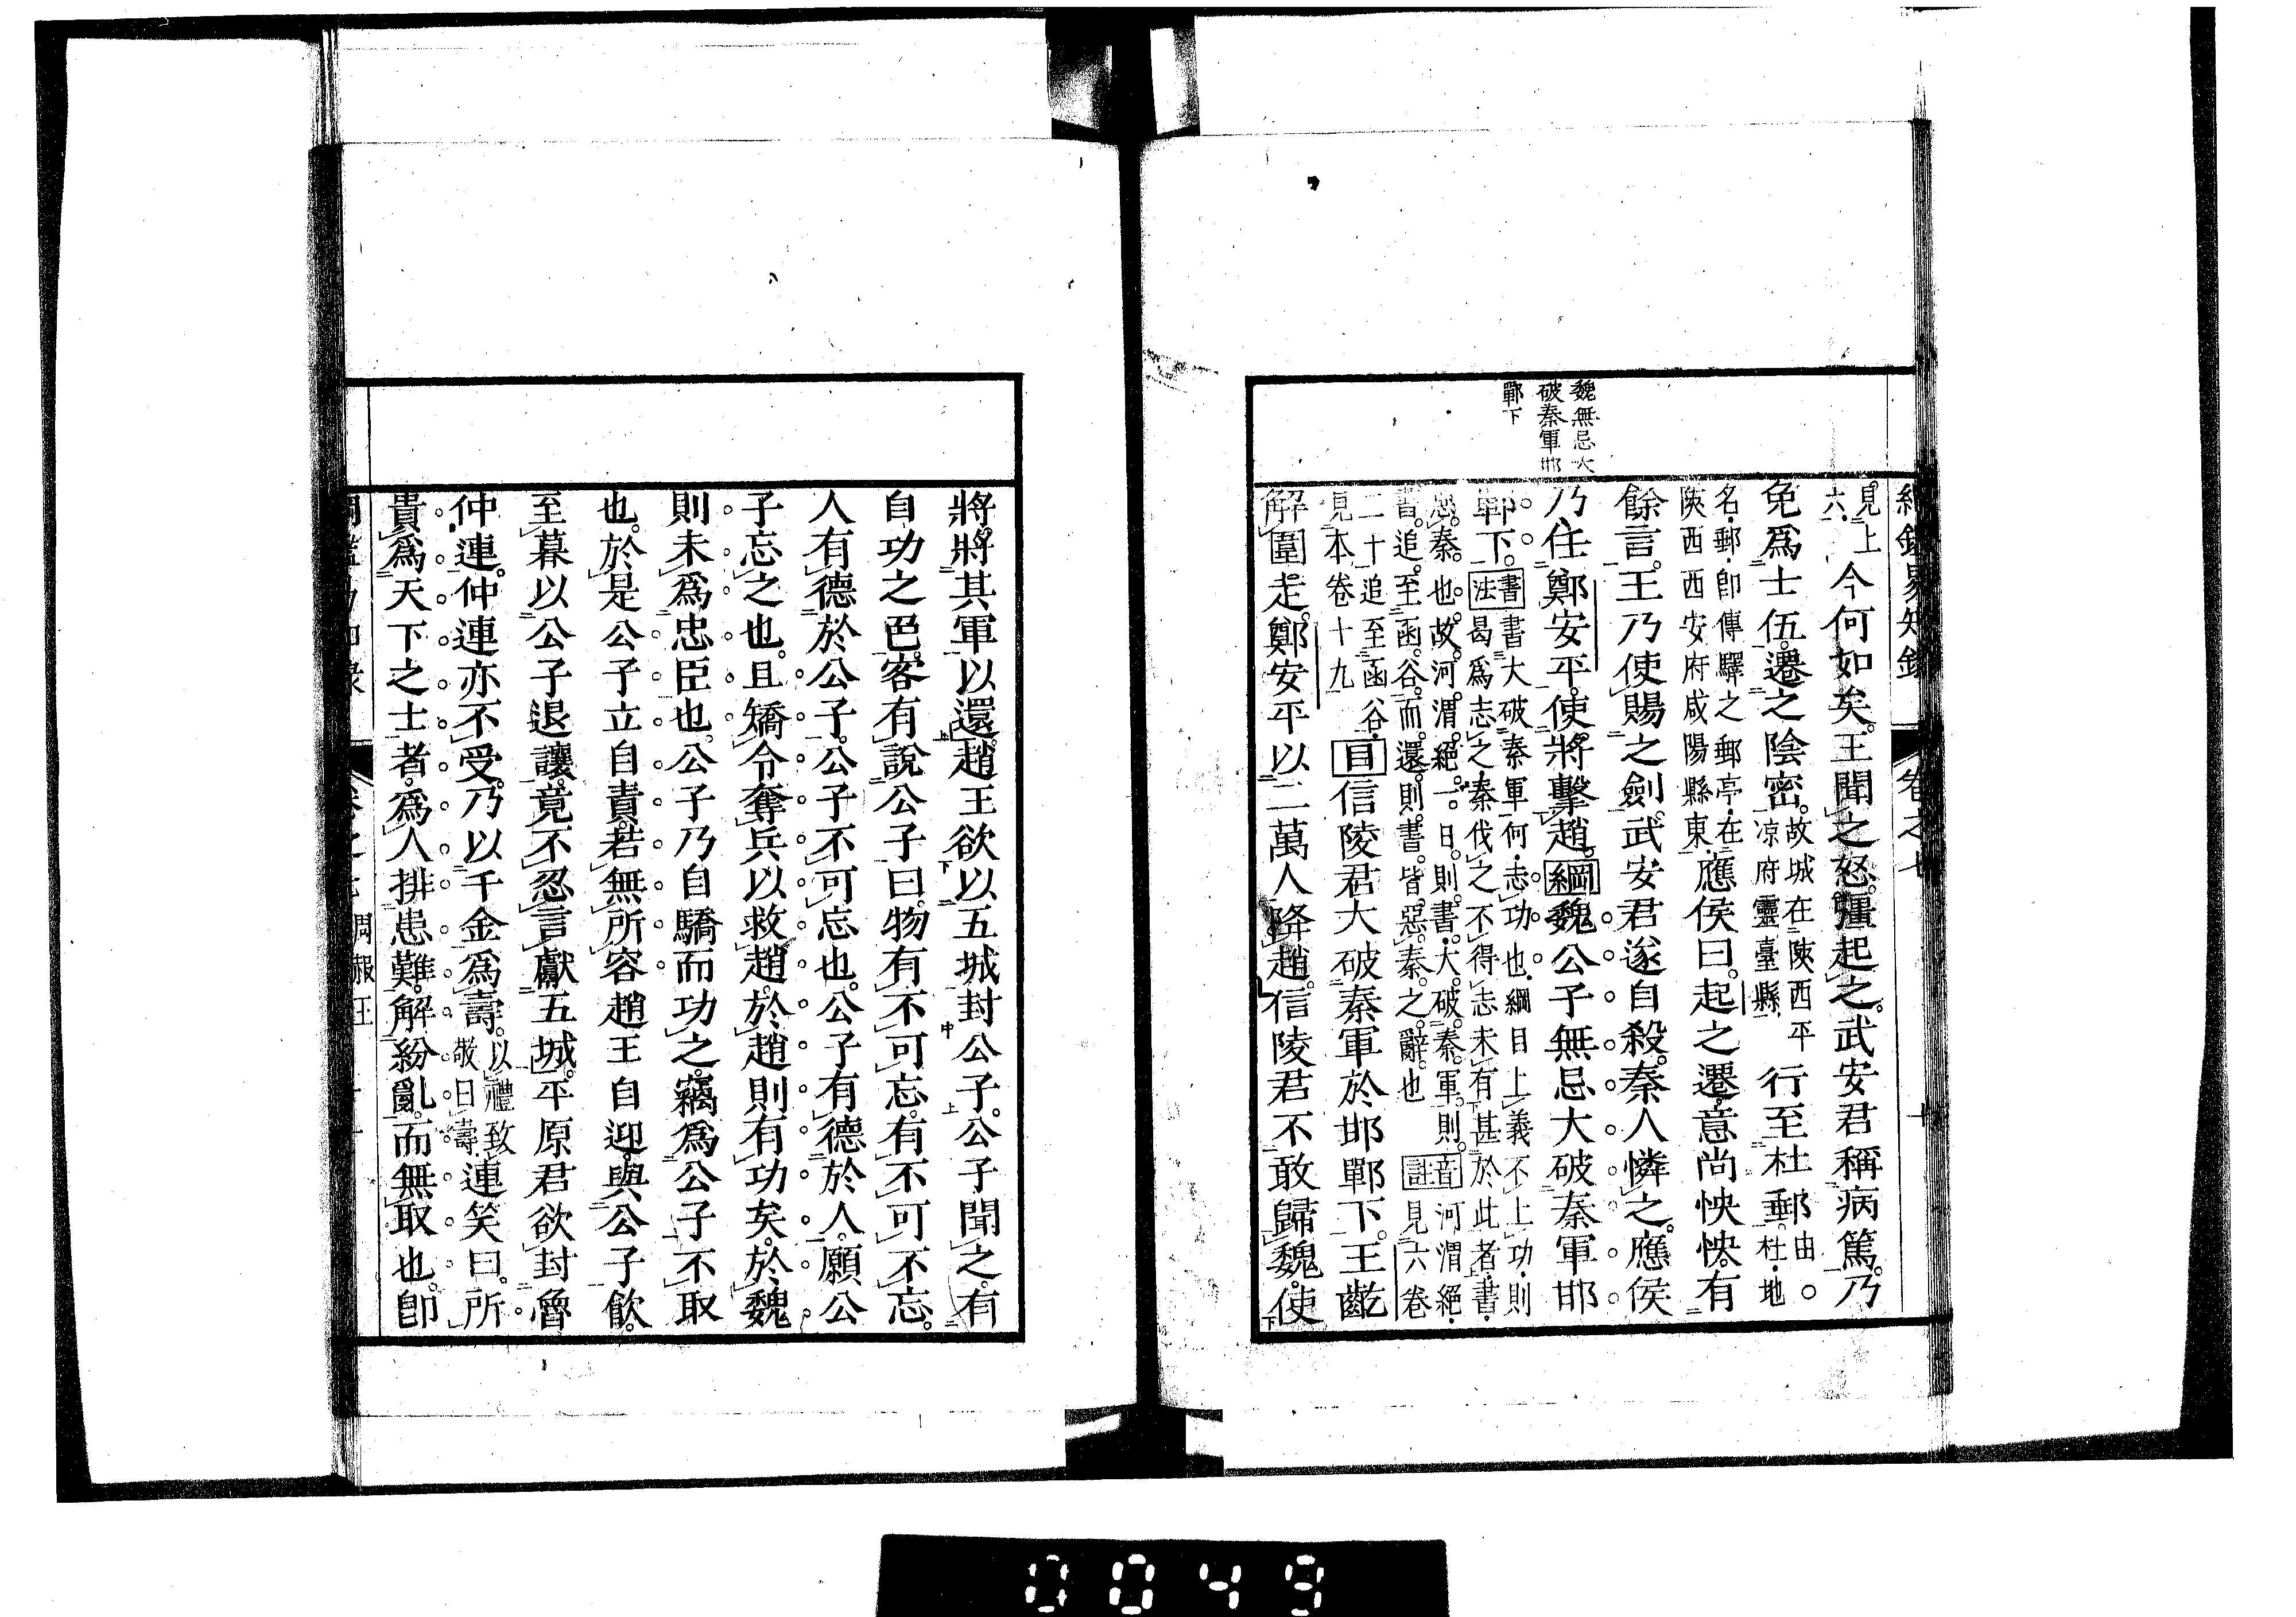 魏無忌大
破秦軍邯
鄲下
見上六今何如矣。王聞之怒。彊起之。武安君稱病篤。乃
免爲士伍。遷之陰密。故城在陝西平涼府靈臺縣行至杜郵。杜地
名郵卽傳驛之郵亭在陝西西安府咸陽縣東應侯曰。起之遷。意尚怏怏。有
餘言。王乃使賜之劍。武安君遂自殺。秦人憐之。應侯
乃任鄭安平。使將擊趙。綱魏公子無忌大破秦軍邯
鄲下。書法書大破秦軍何志功也綱目上義不上功則曷爲志之秦伐之不得志未有甚於此者書
忌。秦。也。故。河。渭。絕。一。日。則。書。大。破。秦。軍。則。書。追。至。函。谷。而。還。則。書。皆。惡。秦。之。辭。也音註河渭絕見六卷
二十追至函谷見本卷十九目信陵君大破秦軍於邯鄲下。王齕
解圍走。鄭安平以二萬人降趙。信陵君不敢歸魏。使
將將其軍以還。趙王欲以五城封公子。公子聞之。有
自功之色。客有說公子曰。物有不可忘。有不可不忘。
人有德於公子。公子不可忘也。公子有德於人。願公
子忘之也。且矯令奪兵以救趙。於趙則有功矣。於魏
則未爲忠臣也。公子乃自驕而功之。竊爲公子不取
也。於是公子立自責。若無所容趙王自迎。與公子飮。
至暮以公子退讓。竟不忍言獻五城。平原君欲封魯
仲連。仲連亦不受。乃以千金爲壽。以禮致敬曰壽連笑曰。所
貴爲天下之士者。爲人排患難。解紛亂。而無取也。卽